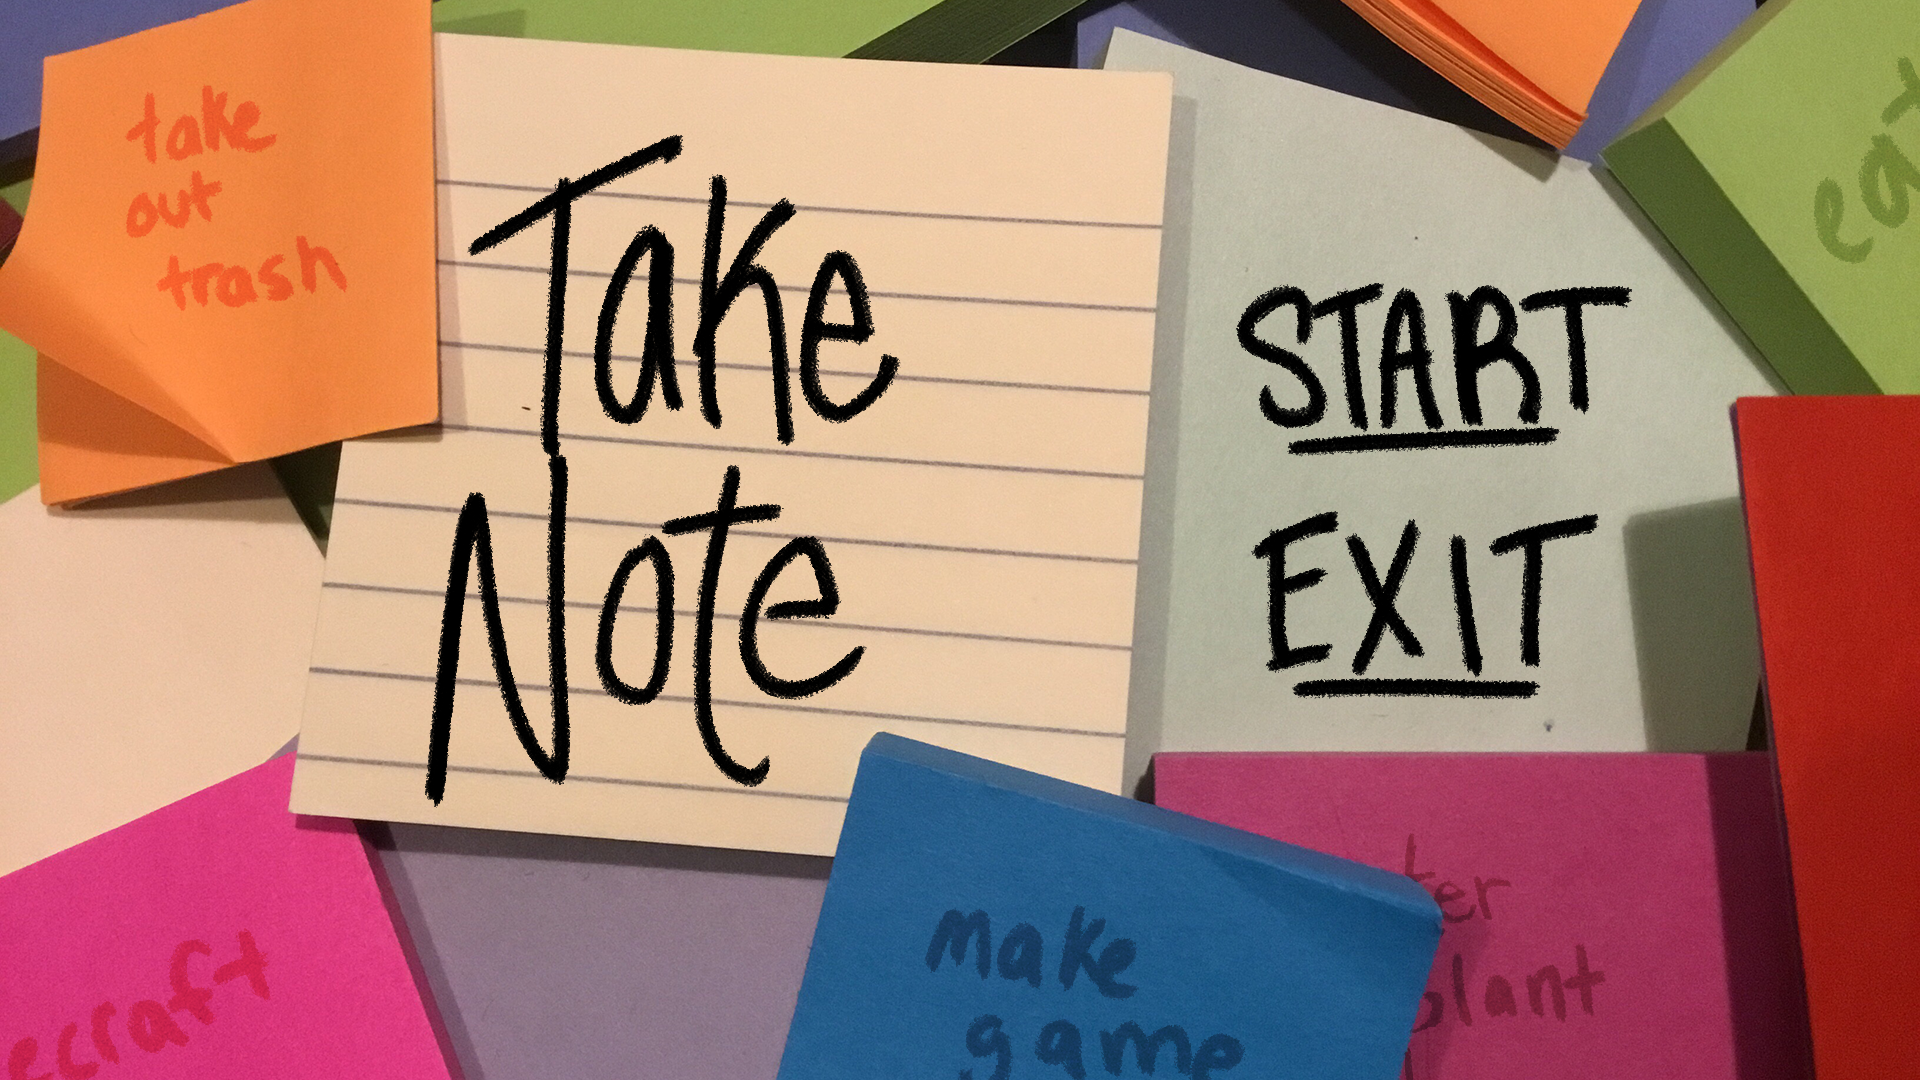 take
out
trash
Take
Note
START
EXIT
eat
ecraft
make
game
ter
plant